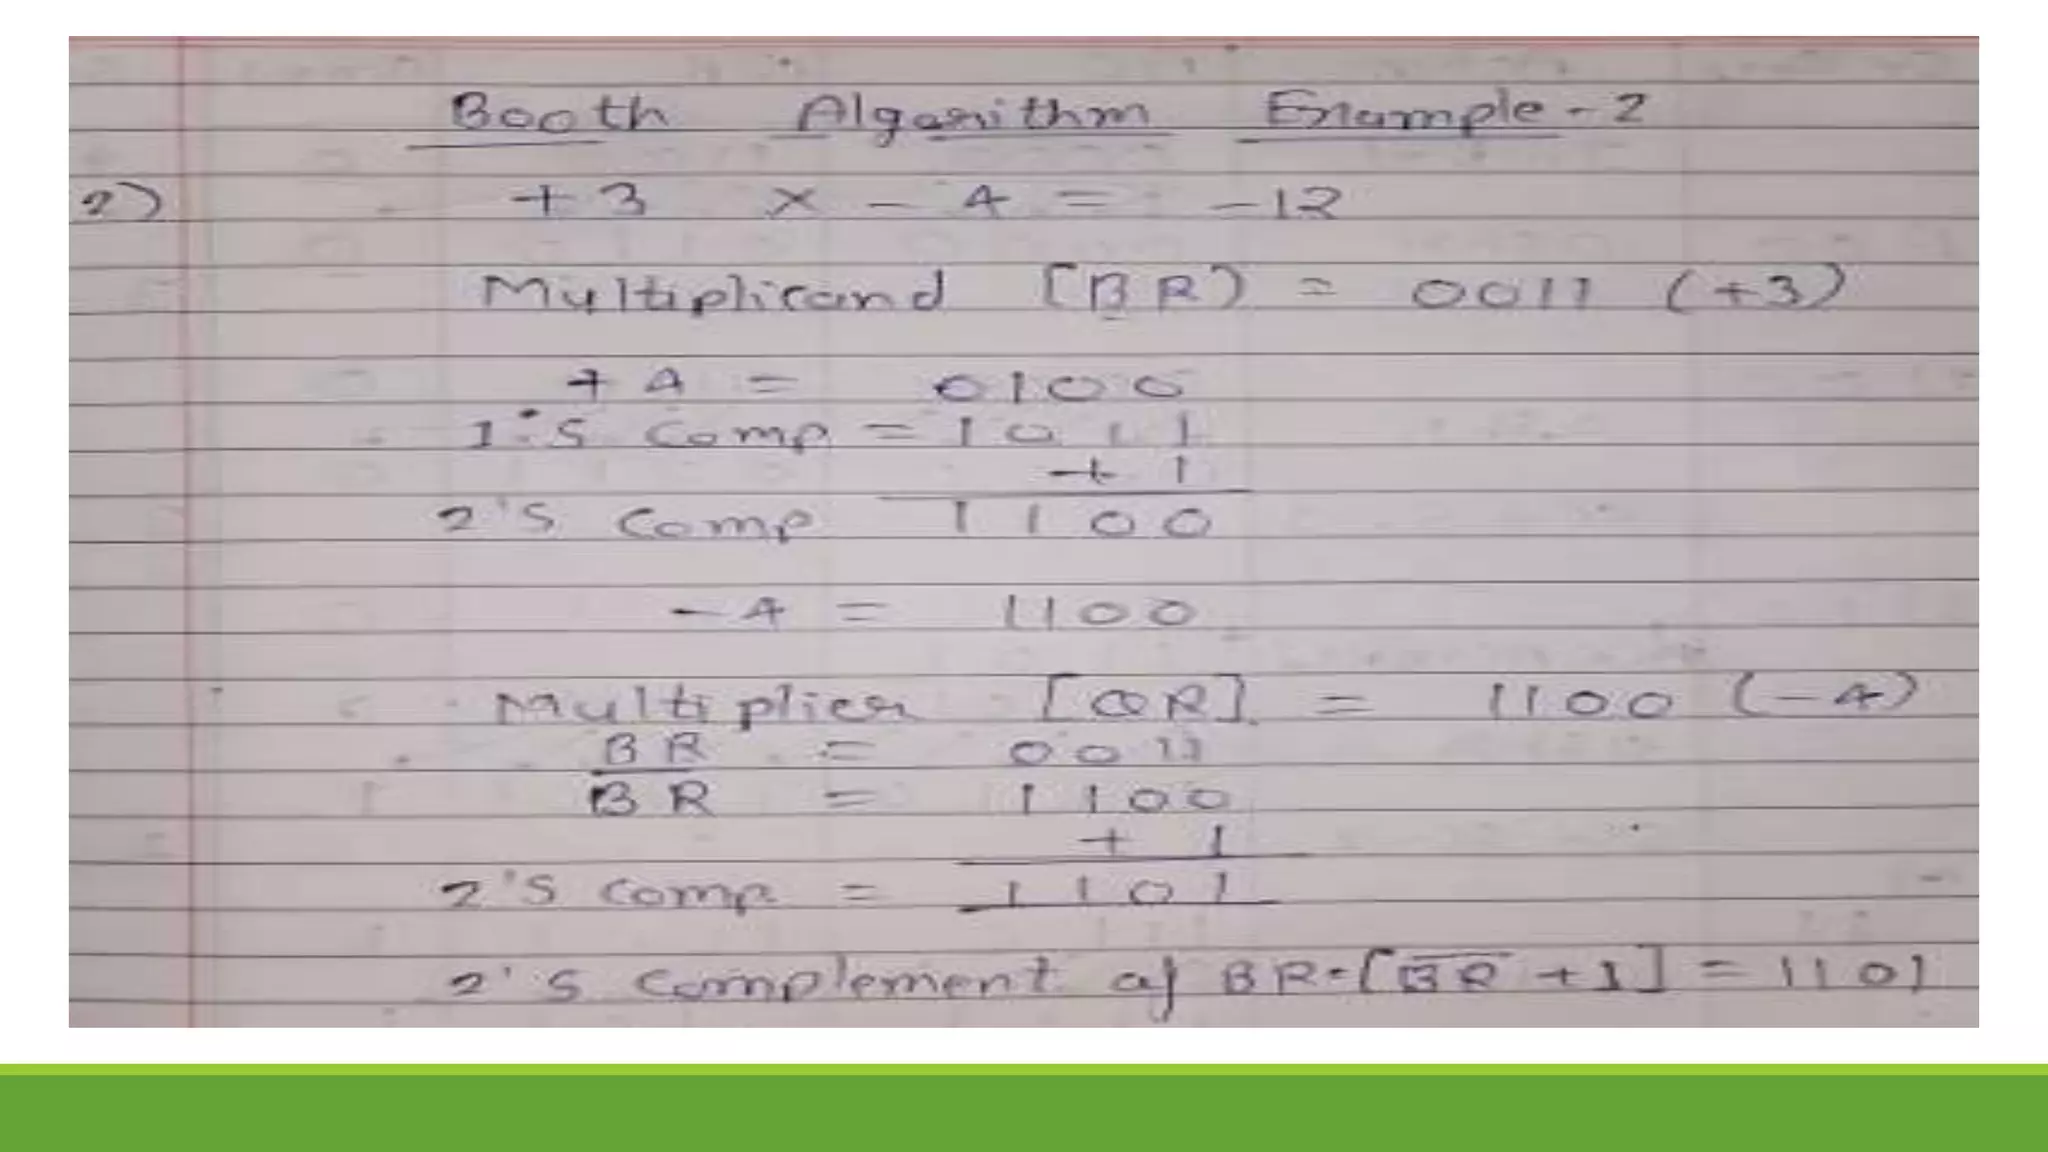 Booth Algorithm Example - 2
2) +3 × - 4 = -12
Multiplicand [BR) = 0011 (+3)
+4 = 0100
1's Comp = 1011
+ 1
2's Comp 1100
-4 = 1100
Multiplier [QR] = 1100 (-4)
BR = 0011
B̅R̅ = 1100
+ 1
2's comp = 1101
2's complement of BR = [B̅R̅ + 1] = 1101